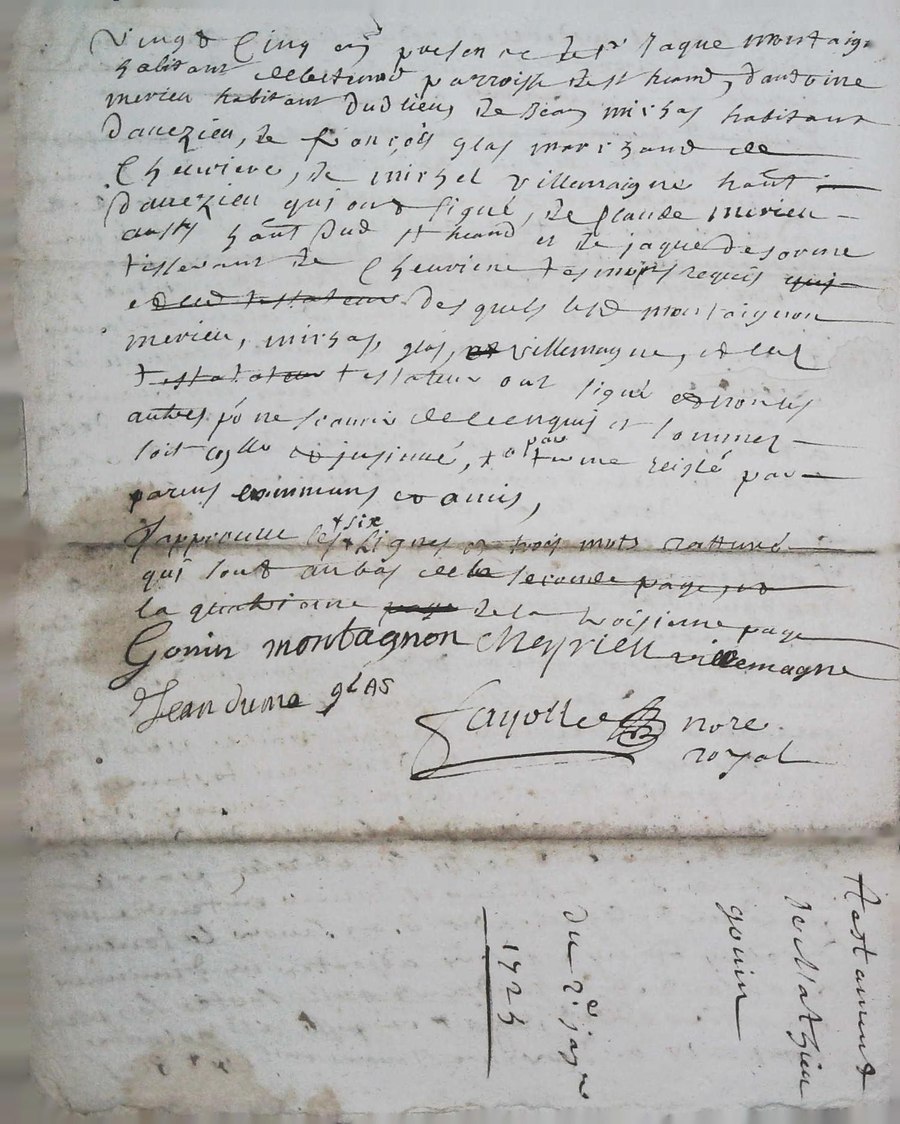 vingt Cinq en presence de sr Jaque montaig
habitant parroisse de st heand, dantoine
merieu habitant dud lieu, de Jean michas habitant
davezieu, de françois glas marchand de
Chevriere, de michel villemaigne hañt
davezieu qui ont signé, de Claude merieu
aussy hañt dud st heand et de jaque desorme
tisserant de Chevriere tesmoins requis qui
testateur desquels lesd montaignon
merieu, michas, glas, et villemagne, et led
testateur testateur ont signé et non les
autres po ne scavoir de ce enquis et sommez
soit par
parens communs et amis,
J'approuve les six lignes et trois mots ratturé
qui sont au bas de la seconde page et
la quatrieme page de la troisieme page
Gonin montagnon Meyrieu villemagne
Jean glas
fayolle nore
royal
testament
de Mathieu
gonin
du 2e
1725